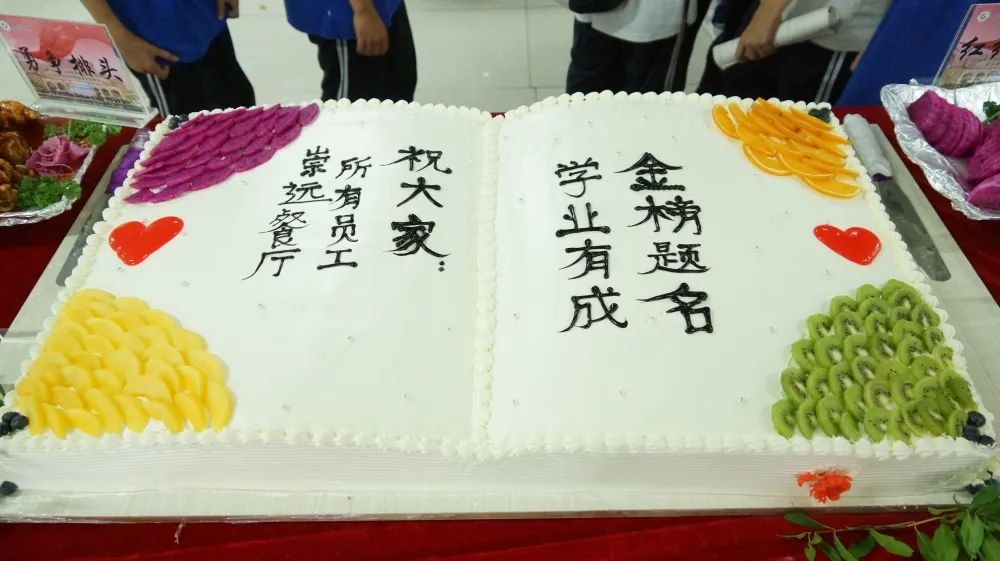 勇争排头
祝大家:
所有员工
崇远餐厅
金榜题名
学业有成
红